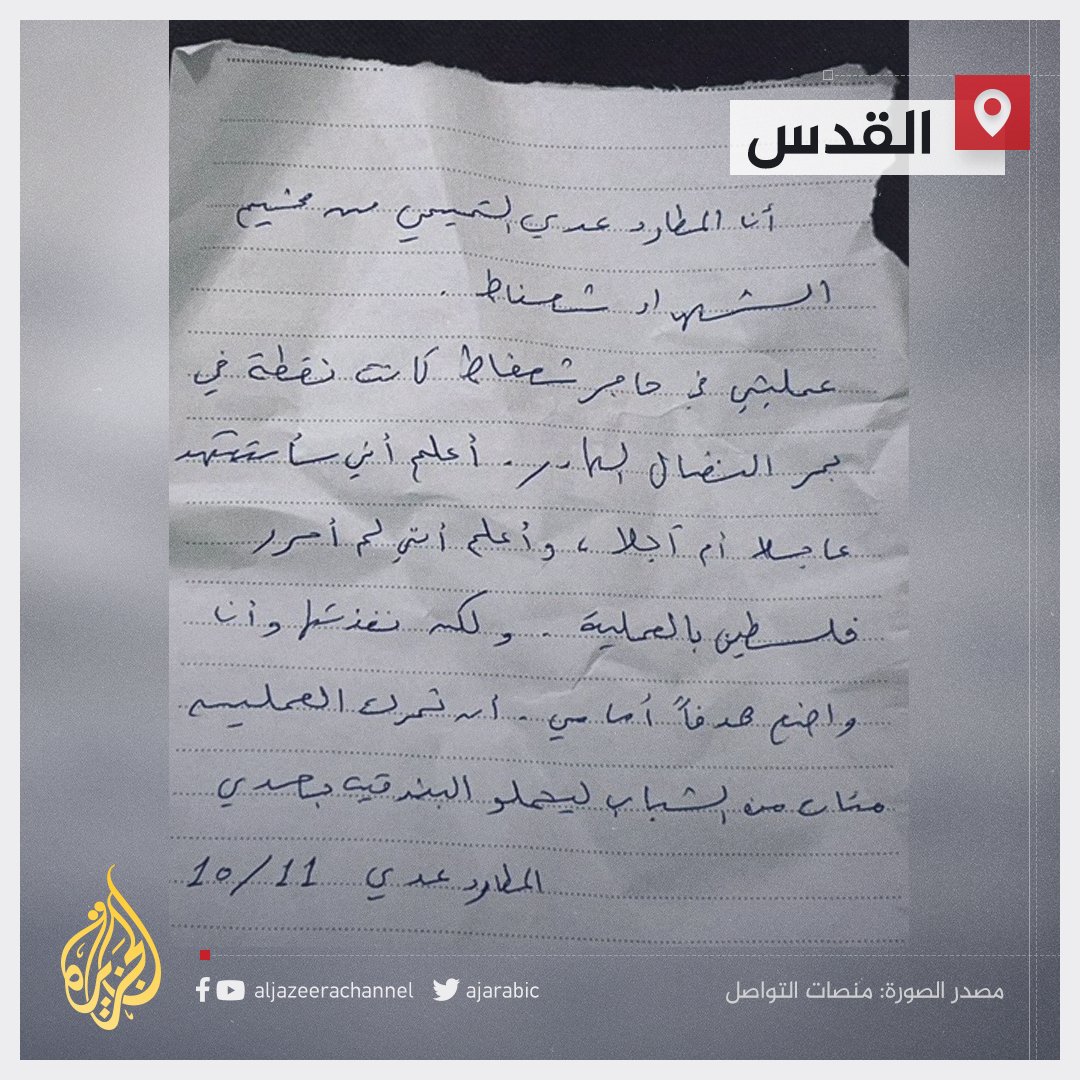 القدس
أنا المطارد عدي التميمي من مخيم
الشهداء شعفاط .
عمليتي في حاجز شعفاط كانت نقطة في
بحر النضال الهادر . أعلم أني سأستشهد
عاجلا أم آجلا ، وأعلم أنني لم أحرر
فلسطين بالعملية . ولكن نفذتها وأنا
واضع هدفاً أمامي . أن تحرك العمليه
مئات من الشباب ليحملو البندقيه بعدي
المطارد عدي 10/11
الجزيرة
aljazeerachannel ajarabic
مصدر الصورة: منصات التواصل